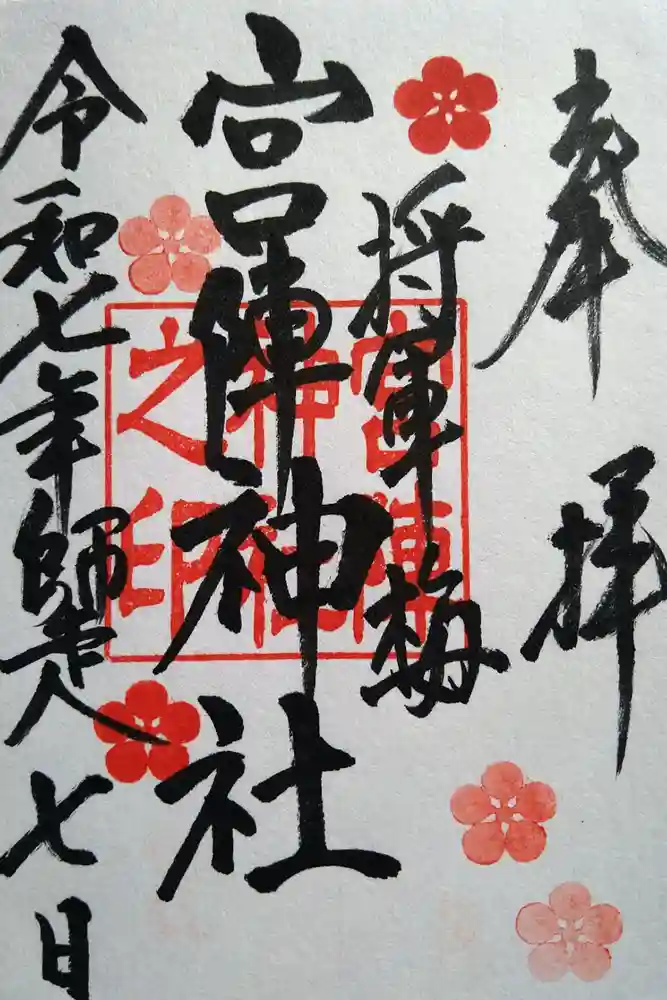 奉拝
将軍梅
宮陣神社
宮陣
神社
之印
令和七年師走七日